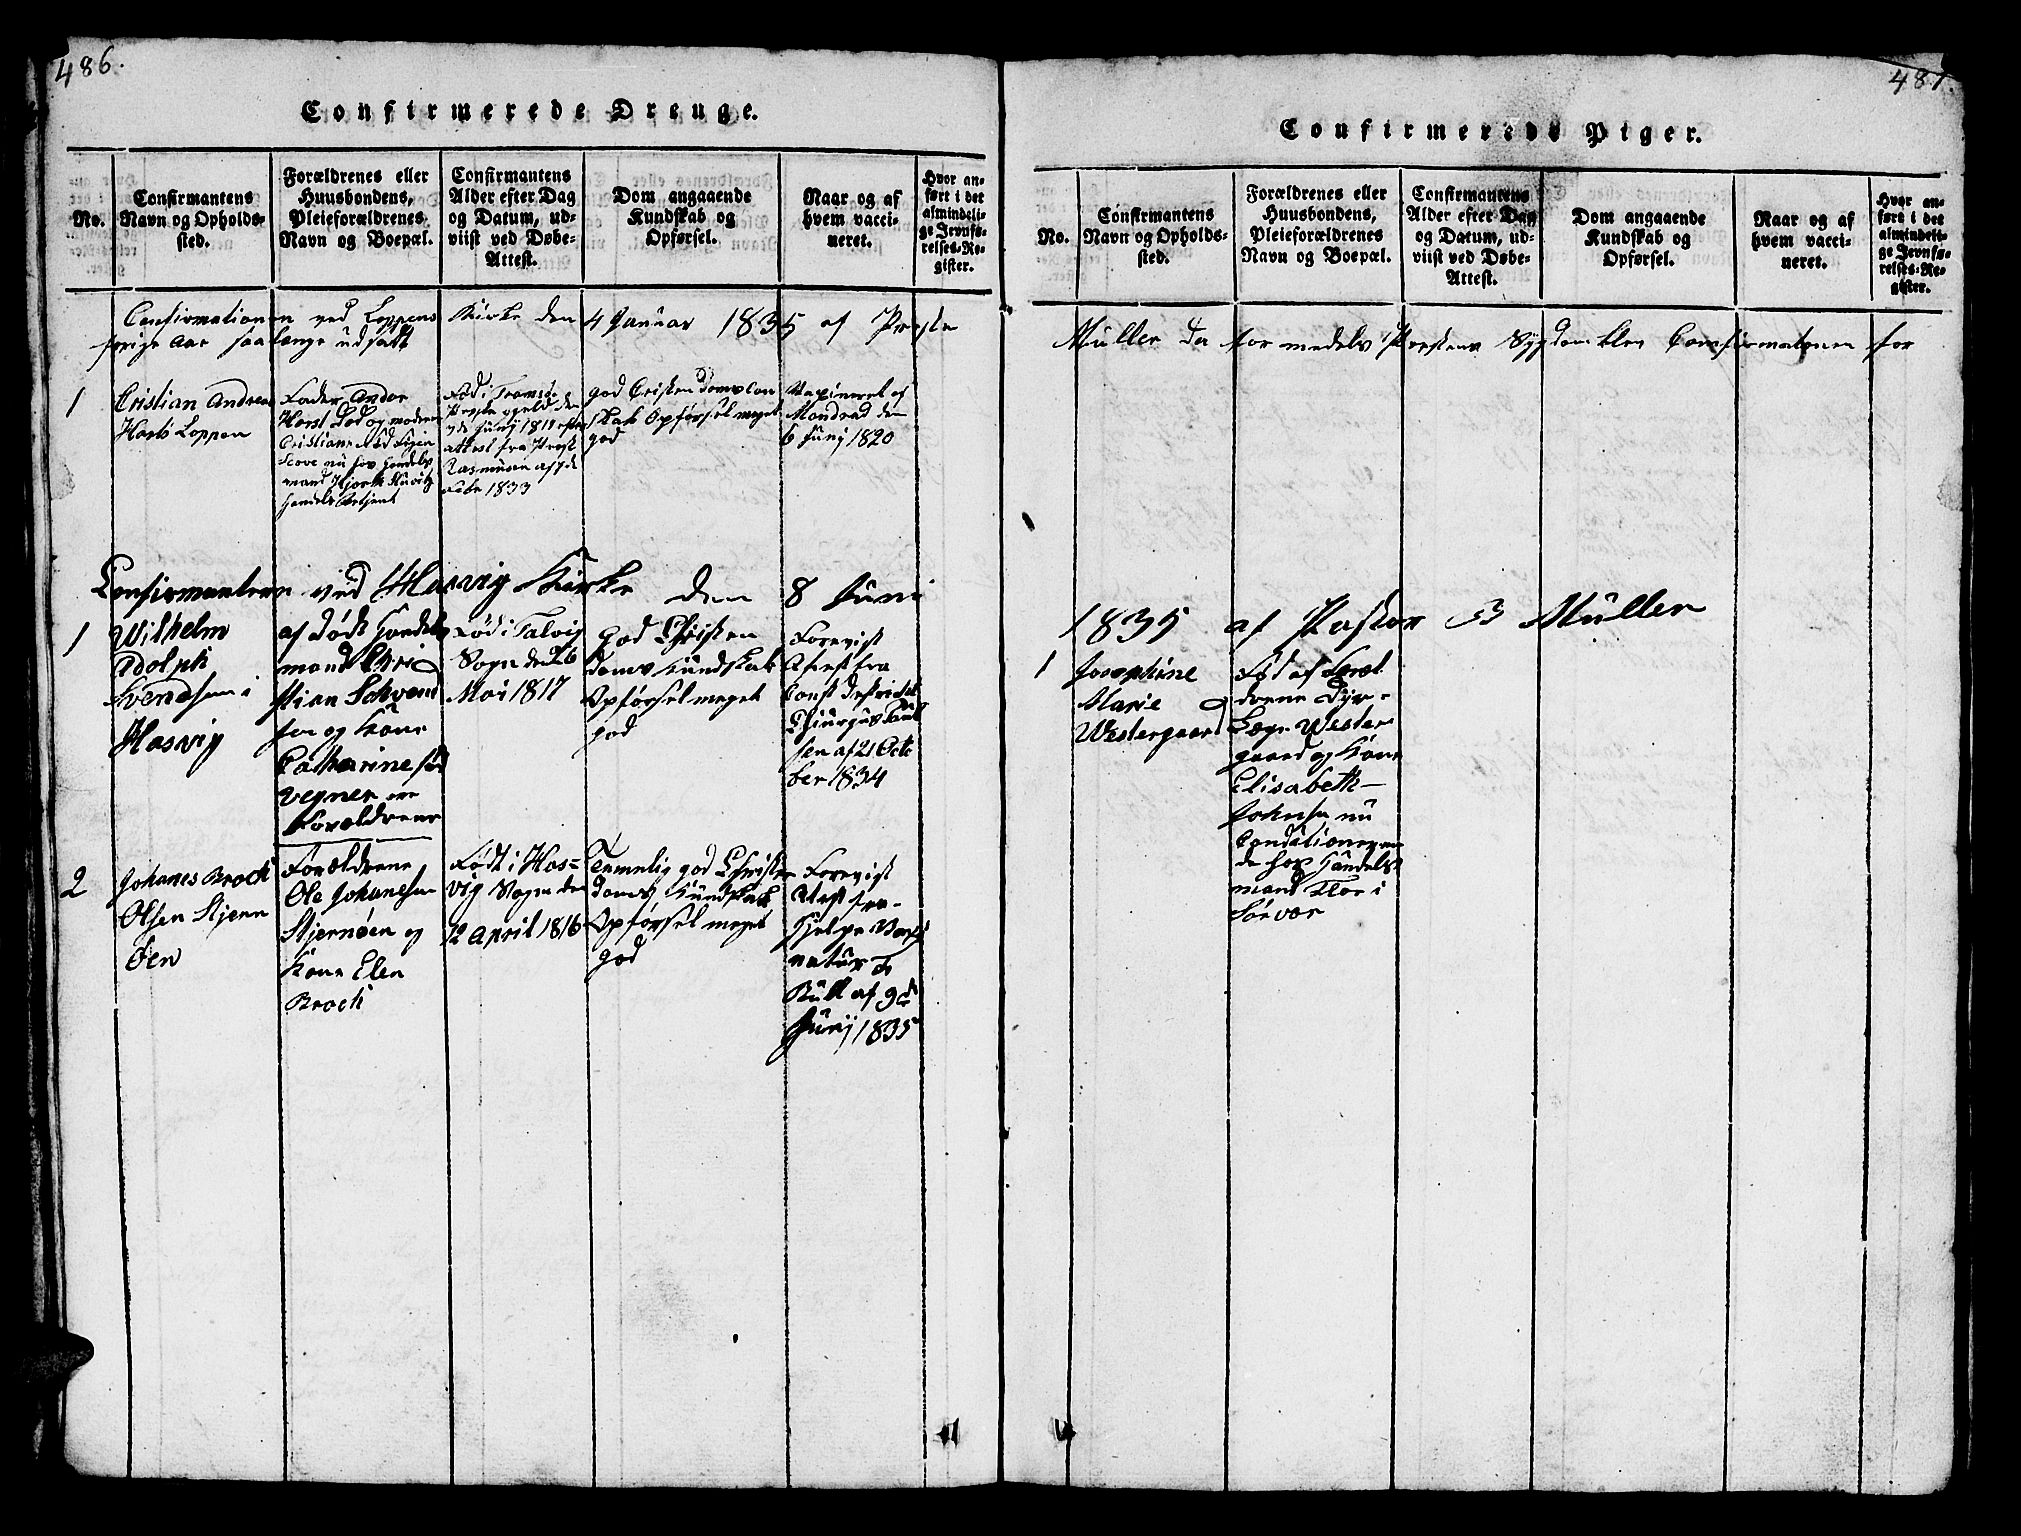 486.
Confirmerede Drenge.
No.
Confirmantens
Navn og Opholds-
sted.
Forældrenes eller
Huusbondens,
Pleieforældrenes
Navn og Boepæl.
Confirmantens
Alder efter Dag
og Datum, ud-
viist ved Døbe-
Attest.
Dom angaaende
Kundskab og
Opførsel.
Naar og af
hvem vacci-
neret.
Hvor an-
ført i det
almindeli-
ge Jevnfø-
relses-Re-
gister.
Confirmationen ved Loppens Kirke den 4 Januar 1835 af Præste
forige Aar saa længe udsatt
1
Cristian Andreas
Loppen
Fader
Horst Død og moderen
Cristiane
nu for Handels
mand Hjorth
Født i Tromsø
Præstegjeld den
Junij 1818 efter
attest fra Præst
Rasmusen af 7de
1833
god Cristendoms Kon
skab Opførsel meget
god
Vaxineret af
den
6 Junij 1820
Confirmanterne ved Hasvig Kirke den 8 Juni
1
Wilhelm
Adolph
Svendsen i
Hasvig
af Døde Handels
mand Chri
stian Schvend
sen og Kone
Catharine fød
Vegner ere
Forældrene
Fød i Talvig
Sogn den 26
Mai 1817
God Christen
doms Kundskab
Opførsel meget
god
Forevist
Atest fra
Const Destrickt
Chiurgus
sen af 21 Octo
ber 1834
2
Johanes Brock
Olsen Stjern
Øen
Forældrene
Ole Johanesen
Stjernøen og
Kone Elen
Brock
Født i Has-
vig Sogn den
12 April 1816
Temmelig god Christen
doms Kundskab
Opførsel meget
god
Forevist
Atest fra
Hjelpe Vaxi
natør F
Bull af 9de
Junij 1835
487.
Confirmerede Piger.
No.
Confirmantens
Navn og Opholds-
sted.
Forældrenes eller
Huusbondens,
Pleieforældrenes
Navn og Boepæl.
Confirmantens
Alder efter Dag
og Datum, ud-
viist ved Døbe-
Attest.
Dom angaaende
Kundskab og
Opførsel.
Naar og af
hvem vacci-
neret.
Hvor an-
ført i det
almindeli-
ge Jevnfø-
relses-Re-
gister.
Müller da formedels Præstens Sygdom blev Comfirmatonen for
1835 af Pastor B Müller
1
Josephine
Marie
Westergaard
Fød af Foræl
drene Dyre-
Læge Wester
gaard og Kone
Elisabeth
Johnsen nu
Conditioneren
de hos Handels
mand Flor i
Sørvær